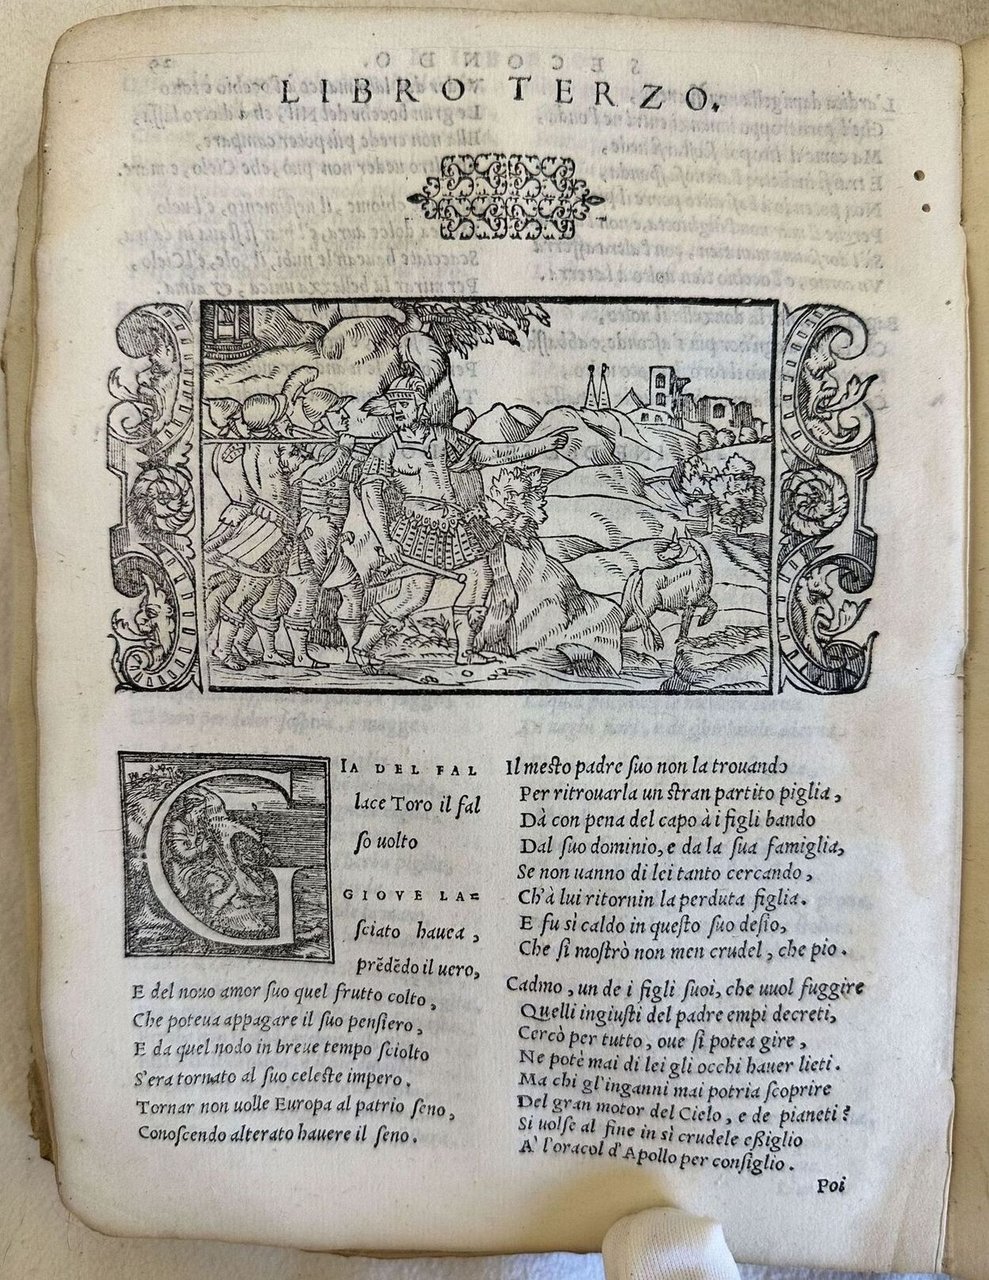 LIBRO TERZO.
GIA DEL FAL
lace Toro il fal
ſo uolto
GIOVE LA=
ſciato hauea,
prẽdẽdo il uero,
E del nouo amor ſuo quel frutto colto,
Che poteua appagare il ſuo penſiero,
E da quel nodo in breue tempo ſciolto
S'era tornato al ſuo celeſte impero.
Tornar non uolle Europa al patrio ſeno,
Conoſcendo alterato hauere il ſeno.
Il meſto padre ſuo non la trouando
Per ritrouarla un ſtran partito piglia,
Dà con pena del capo à i figli bando
Dal ſuo dominio, e da la ſua famiglia,
Se non uanno di lei tanto cercando,
Ch'à lui ritornin la perduta figlia.
E fu sì caldo in queſto ſuo deſio,
Che ſi moſtrò non men crudel, che pio.
Cadmo, un de i figli ſuoi, che uuol fuggire
Quelli ingiuſti del padre empi decreti,
Cercò per tutto, oue ſi potea gire,
Ne potè mai di lei gli occhi hauer lieti.
Ma chi gl'inganni mai potria ſcoprire
Del gran motor del Cielo, e de pianeti?
Si uolſe al fine in sì crudele eßiglio
A' l'oracol d'Apollo per conſiglio.
Poi